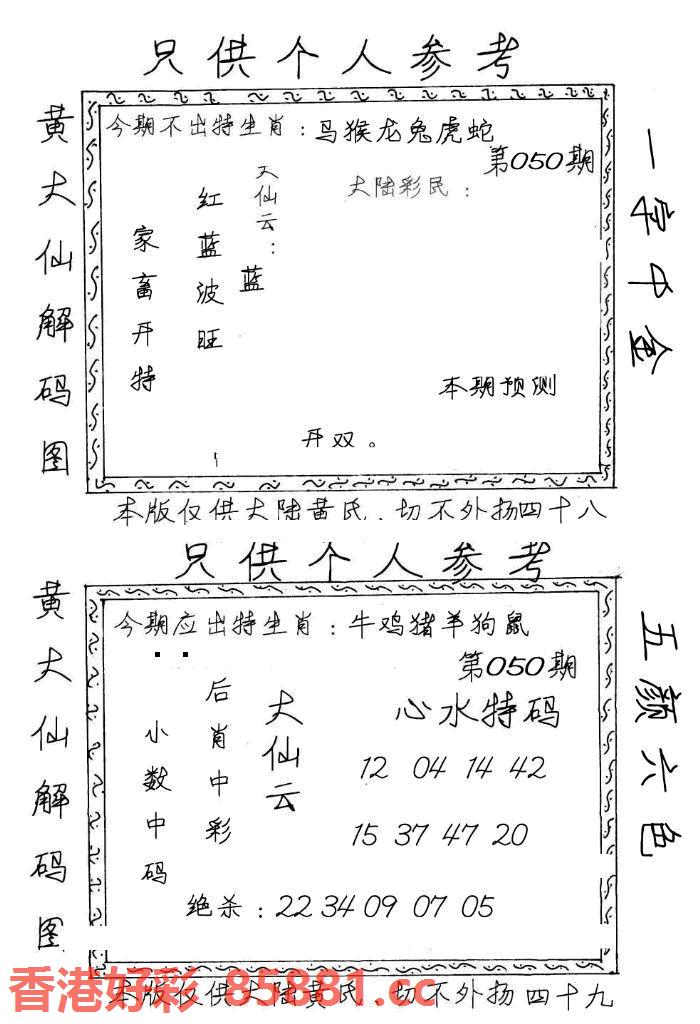 只供个人参考
黄大仙解码图
今期不出特生肖：马猴龙兔虎蛇
第050期
大陆彩民：
大仙云：
蓝
红蓝波旺
家畜开特
本期预测
开双。
一字中金
本版仅供大陆黄氏.切不外扬四十八
只供个人参考
黄大仙解码图
今期应出特生肖：牛鸡猪羊狗鼠
第050期
心水特码
12 04 14 42
15 37 47 20
大仙云
后肖中彩
小数中码
绝杀：22 34 09 07 05
五颜六色
香港好彩 85881.cc
本版仅供大陆黄氏.切不外扬四十九